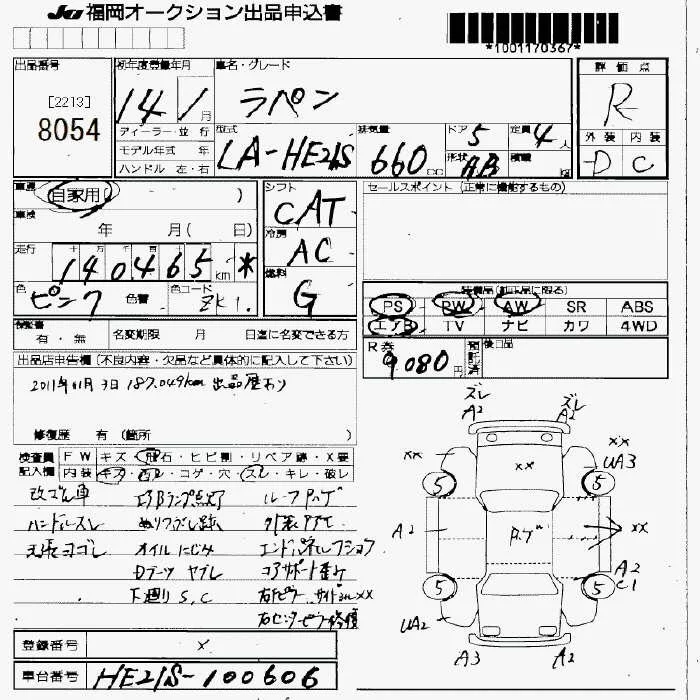 JU 福岡オークション出品申込書
*1001170367*
出品番号
[2213]
8054
初年度登録年月
14 / 1月
ディーラー・並行
モデル年式 年
ハンドル 左・右
車名・グレード
ラパン
型式
LA-HE21S
排気量
660 cc
ドア
5
形状
AB
定員
4人
積載
kg
評価点
R
外装 内装
D C
車歴
自家用 )
車検
年 月( 日)
走行
十 万 千 百 十 一
140465 km *
色
ピンク
色替
色コード
ZK1.
シフト
CAT
冷房
AC
燃料
G
セールスポイント (正常に機能するもの)
装備品(純正品に限る)
PS PW AW SR ABS
エアB TV ナビ カワ 4WD
有・無 名変期限 月 日迄に名変できる方
R券
9080円
預託済
後日品
出品店申告欄 (不良内容・欠品など具体的に記入して下さい)
2011年01月3日 187,049km 出品歴あり
修復歴 有 (箇所 )
検査員
記入欄
FW キズ・飛石・ヒビ割・リペア跡・X要
内装 キズ・コゲ・穴・スレ・キレ・破レ
改ざん車
ハンドルスレ
天張ヨゴレ
エアBランプ点灯
オイルにじみ
Dブーツ ヤブレ
下廻りS,C
ルーフハゲ
コアサポート歪み
右センターピラー修復
ズレ
A2
ズレ
A2
xx
xx
UA3
5
5
xx
A2
ハゲ
xx
A2
C1
5
5
UA2
A3
A2
登録番号
x
車台番号
HE21S-100606